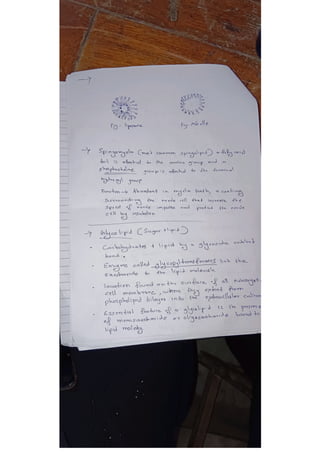 Fig - Liposome Fig - Micelle
→ Sphingomyelin (most common sphingolipid) a fatty acid
tail is attached to the amino group and a
phosphocholine group is attached to the terminal
hydroxyl group
Function → Abundant in myelin sheath, a coating
surrounding the nerve cell that increases the
speed of nerve impulse and protects the nerve
cell by insulation
→ Glycolipid (Sugar + lipid)
- Carbohydrates + lipid by a glycosidic covalent
bond.
- Enzyme called glycosyltransferases link the
saccharide to the lipid molecule
- Location found on the surface of all eukaryotic
cell membrane, where they extend from
phospholipid bilayer into the extracellular
- Essential feature of a glycolipid is the presence
of monosaccharide or oligosaccharide bound to
lipid moiety